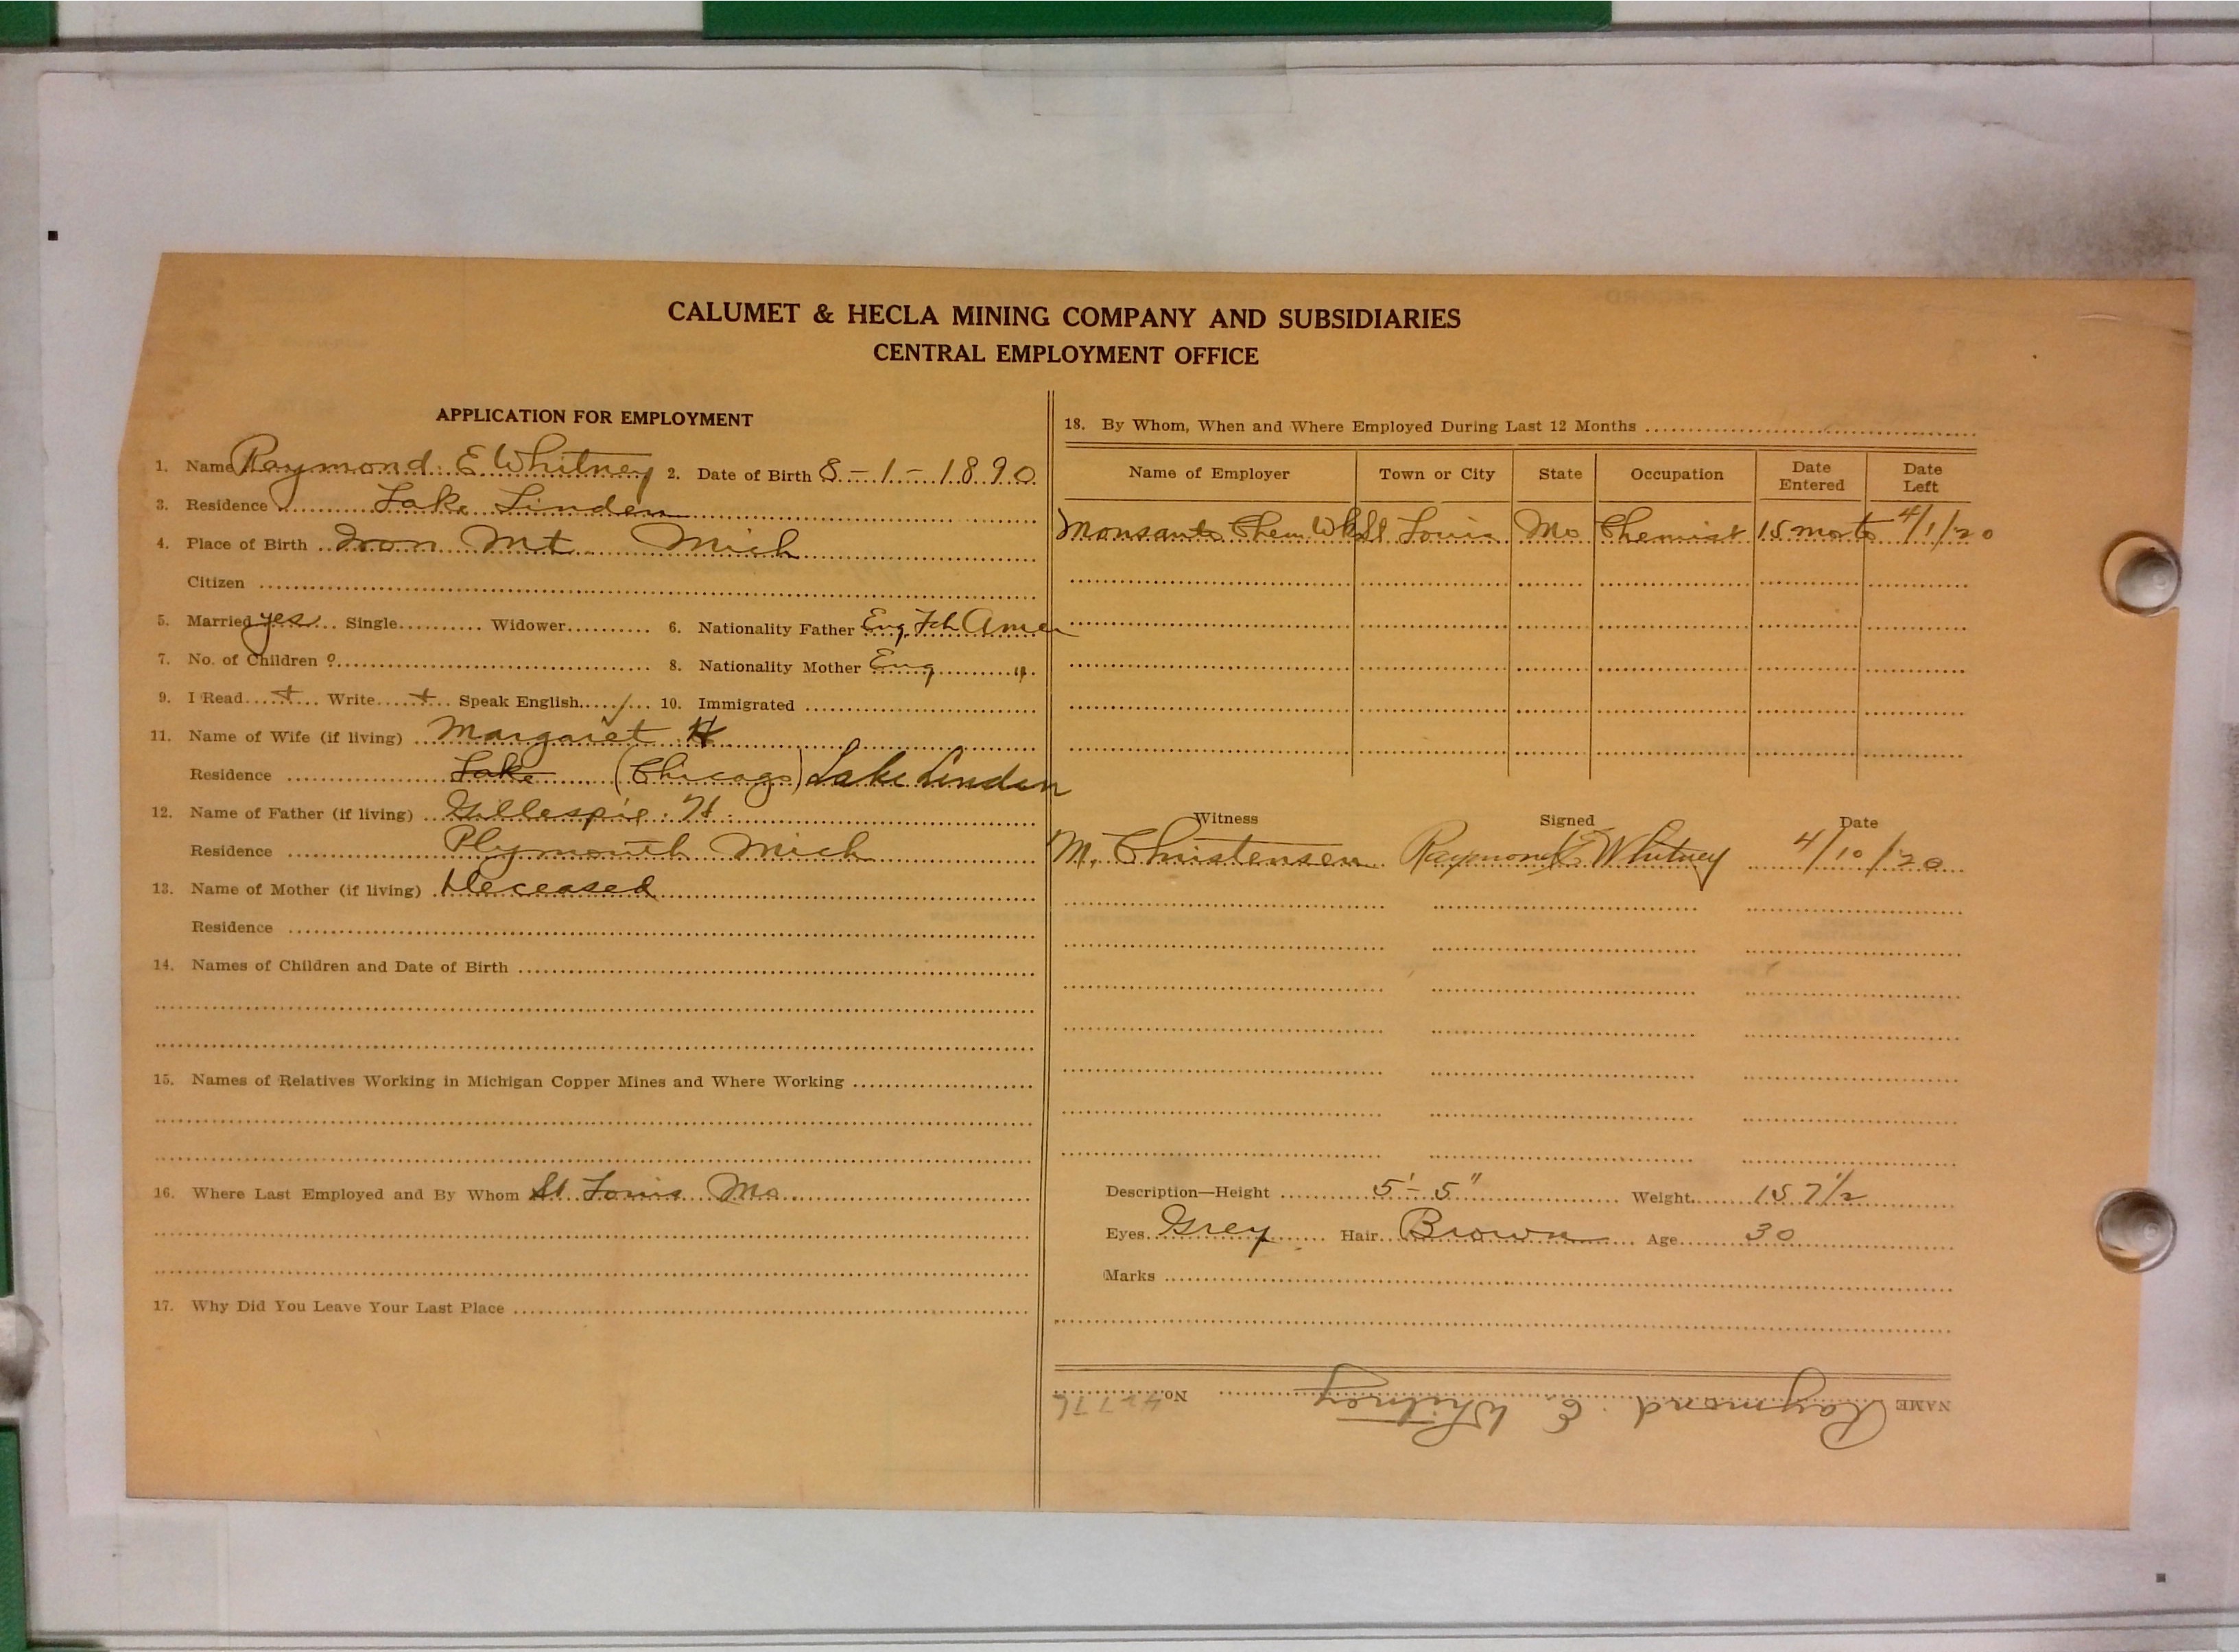 CALUMET & HECLA MINING COMPANY AND SUBSIDIARIES
CENTRAL EMPLOYMENT OFFICE
APPLICATION FOR EMPLOYMENT
1. Name Raymond E Whitney 2. Date of Birth 8-1-1890
3. Residence Lake Linden
4. Place of Birth Iron Mt Mich
Citizen
5. Married yes Single Widower 6. Nationality Father Eng Fch Amer
7. No. of Children 0 8. Nationality Mother Eng "
9. I Read + Write + Speak English ✓ 10. Immigrated
11. Name of Wife (if living) Margaret H
Residence Lake (Chicago) Lake Linden
12. Name of Father (if living) Gillespie H
Residence Plymouth Mich
13. Name of Mother (if living) Deceased
Residence
14. Names of Children and Date of Birth
15. Names of Relatives Working in Michigan Copper Mines and Where Working
16. Where Last Employed and By Whom St Louis Mo
17. Why Did You Leave Your Last Place
18. By Whom, When and Where Employed During Last 12 Months
Name of Employer Town or City State Occupation Date Entered Date Left
Monsanto Chem Wks St Louis Mo Chemist 15 mos to 4/1/20
Witness Signed Date
M. Christensen Raymond E Whitney 4/10/20
Description—Height 5'-5" Weight 157 1/2
Eyes Grey Hair Brown Age 30
Marks
NAME Raymond E. Whitney No.